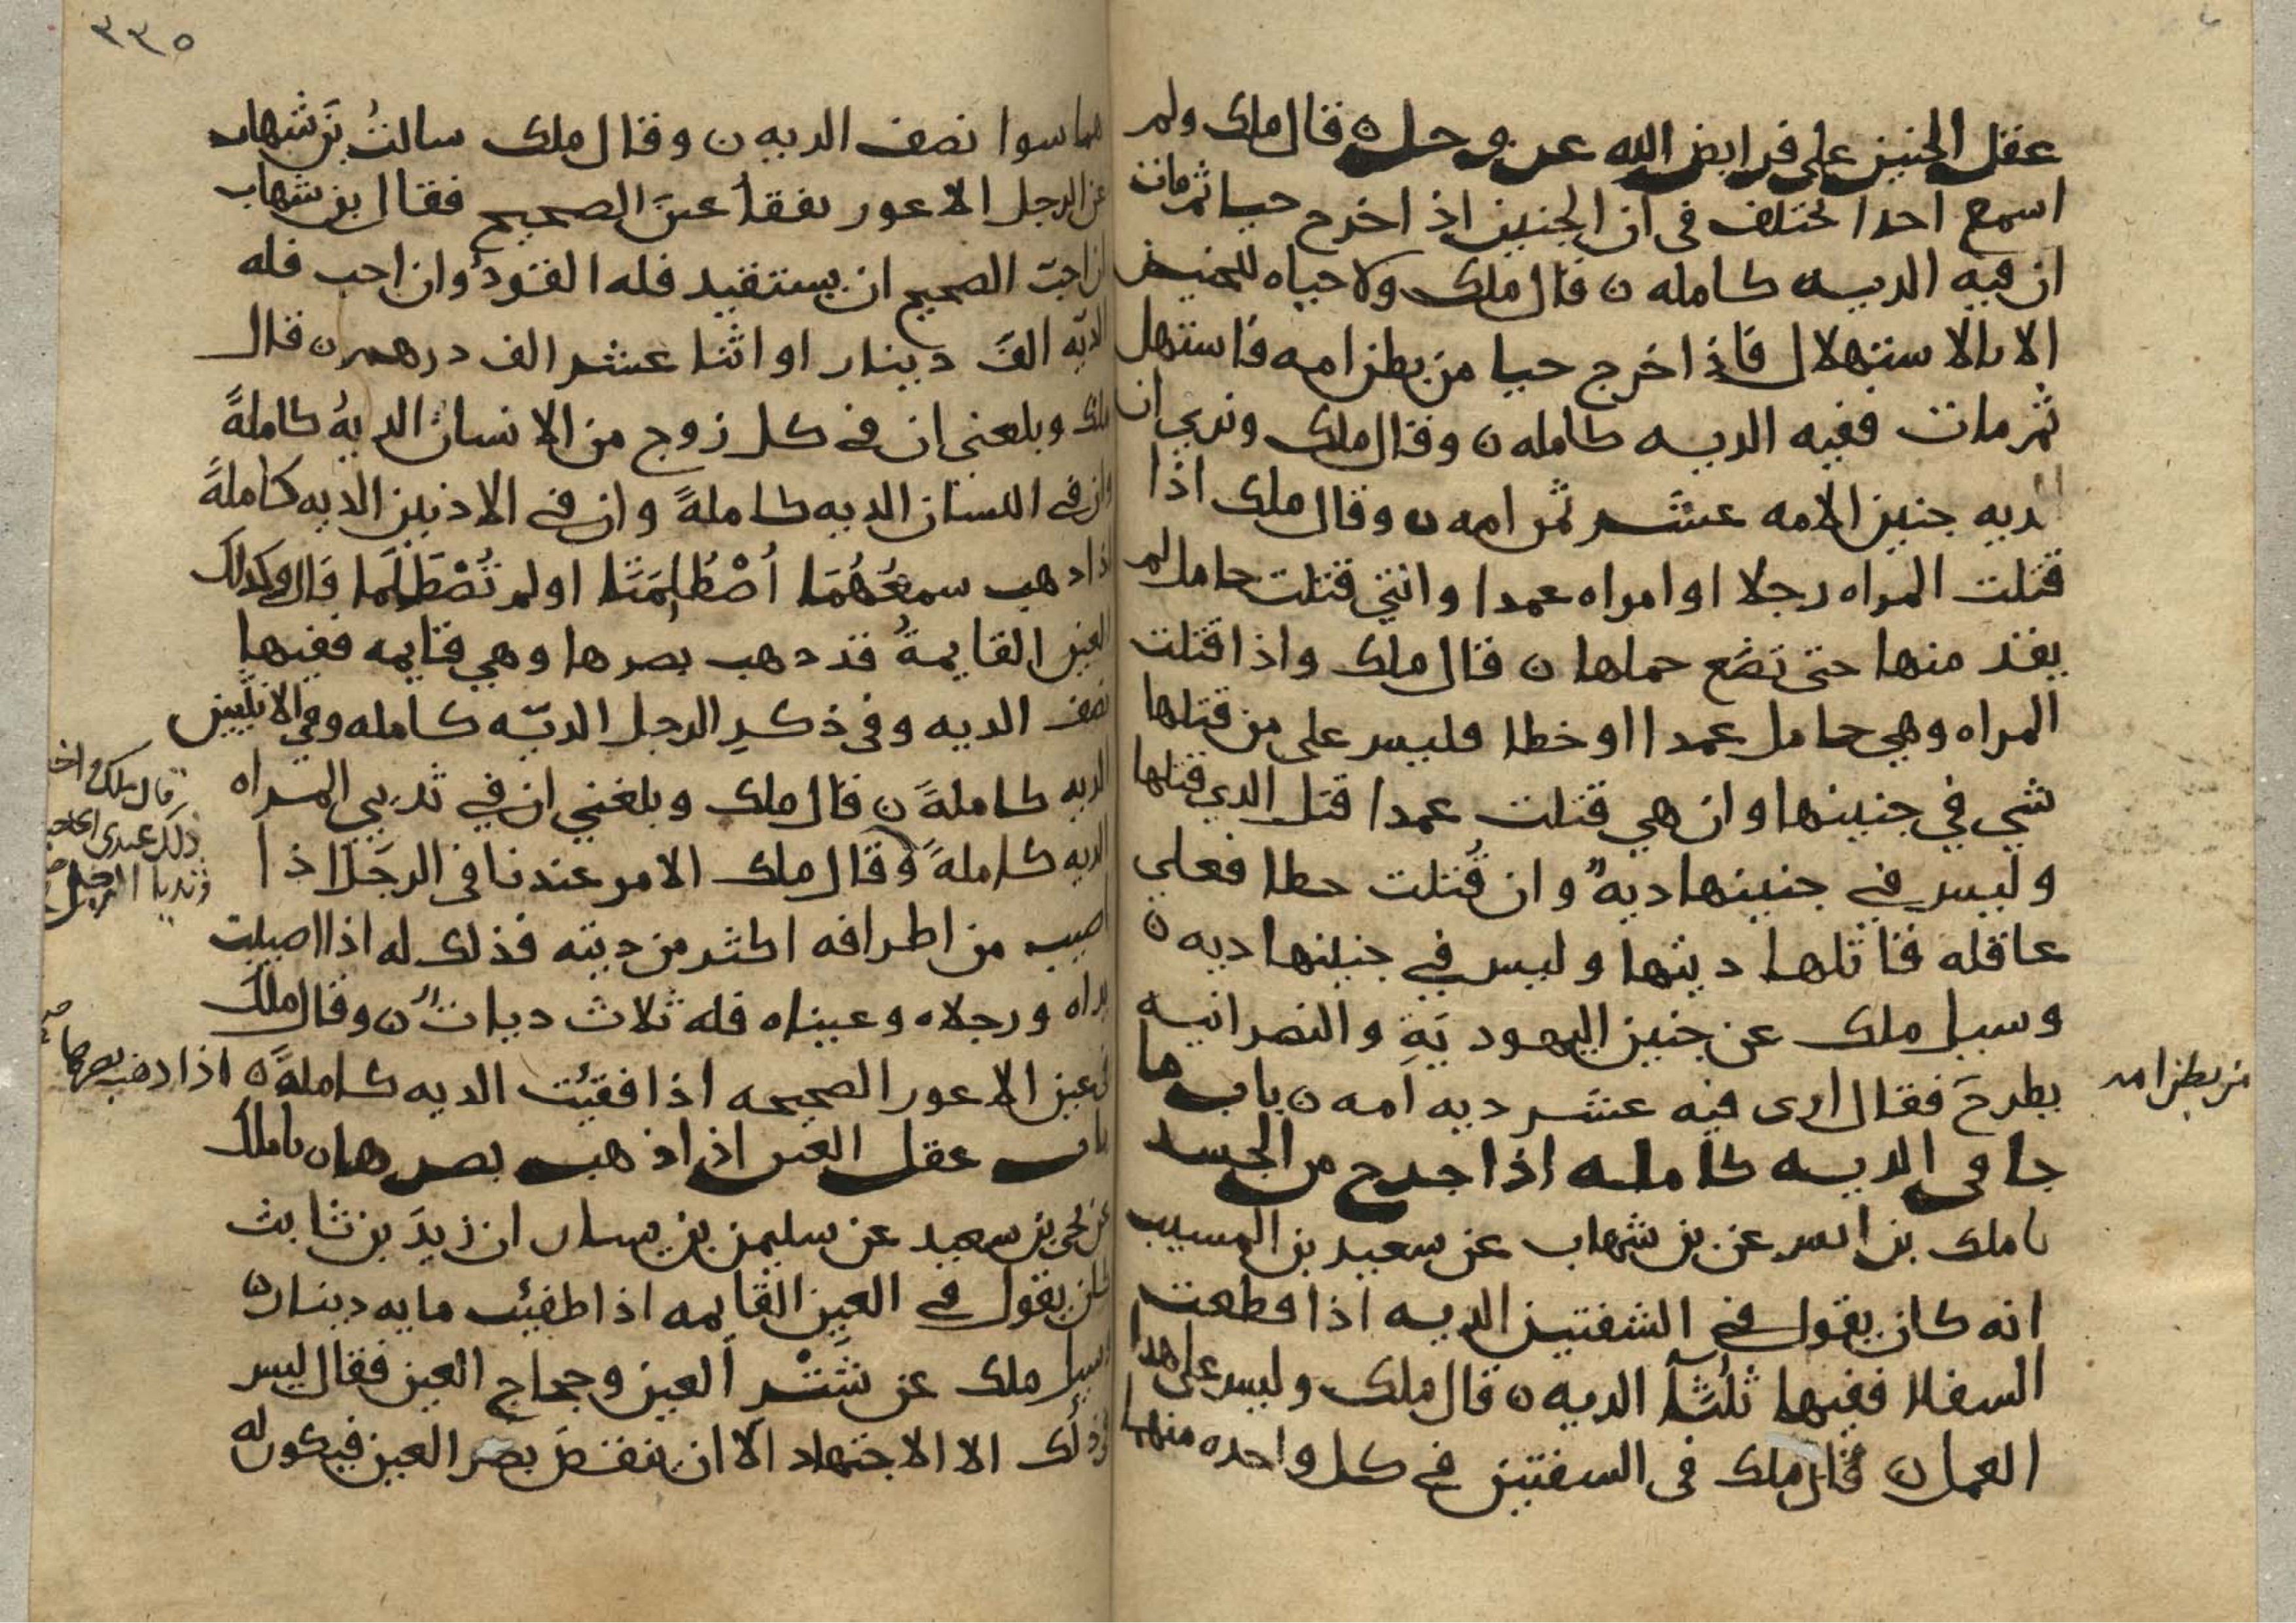 عقل الجنين على فرايض الله عز وجل ن قال ملك ولم
اسمع احدا يختلف في ان الجنين اذ اخرج حيا ثم مات
ان فيه الديه كامله ن قال ملك ولا حياه للجنين
الا بالاستهلال فاذا خرج حيا من بطن امه فاستهل
ثم مات ففيه الديه كامله ن وقال ملك ونري ان
الديه جنين الامه عشر ثمن امه ن وقال ملك اذا
قتلت المراه رجلا او امراه عمدا وانتي قتلت حامل لم
يقد منها حتى تضع حملها ن قال ملك واذا قتلت
المراه وهي حامل عمدا او خطا فليس على من قتلها
شي في جنينها وان هي قتلت عمدا قتل الذي قتلها
وليس في جنينها ديه وان قُتلت خطا فعلي
عاقله قاتلها ديتها وليس في جنينها ديه ن
وسيل ملك عن جنين اليهوديَةِ والنصرانيه
يطرحَ فقال ارى فيه عشر ديه امه ن باب ما
من بطن امه
جا في الديه كامله اذا جدع من الجسد
نا ملك بن انس عن بن شهاب عن سعيد بن المسيب
انه كان يقول في الشفتين الديه اذا قطعت
السفلا ففيها ثلُثا الديه ن قال ملك وليس على هذا
العمل ن قال ملك في السفتين في كل واحده منهما
٣٣٥
هما سوا نصف الديه ن وقال ملك سالتُ بن شهاب
عن الرجل الاعور يفقا عينَ الصحيح فقال بن شهاب
ان احبَ الصحيح ان يستقيد فله القودُ وان احب فله
الديه الفَ دينار او اثنا عشر الف درهم ن قال
ملك وبلغني ان في كل زوج من الانسان الديهُ كاملةً
وان في اللسان الديه كاملةً وان في الاذنين الديه كاملةً
اذا ذهب سمعُهُمَا اُصْطُلِمَتَا او لم تُصْطَلَمَا قال وكذلك
العين القايمةُ قد ذهب بصرها وهي قايمه ففيها
نصف الديه وفي ذكرِ الرجل الديّه كامله وفي الانثيين
الديه كاملةً ن قال ملك وبلغني ان في ثديي المراه
الديه كاملةً وقال ملك الامر عندنا في الرجَل اذا
قال ملك واخف
ذلك عندي الحاجب
وثديا الرجل
اصيب من اطرافه اكثر من ديته فذلك له اذا اصيبت
يداه ورجلاه وعيناه فله ثلاث دياتٍ ن وقال ملك
في عين الاعور الصحيحه اذا فقيئت الديه كاملةً ن
اذا ذهب بصرها
باب عقل العين اذا ذهب بصرها ن نا ملك
عن يحى بن سعيد عن سليمن بن يسار ان زيدَ بن ثابت
كان يقول في العين القايمه اذا طفيئت مايه دينار ن
وسيل ملك عن شَتْرِ العين وحجاج العين فقال ليس
في ذلك الا الاجتهاد الا ان ينقصَ بصر العين فيكون له